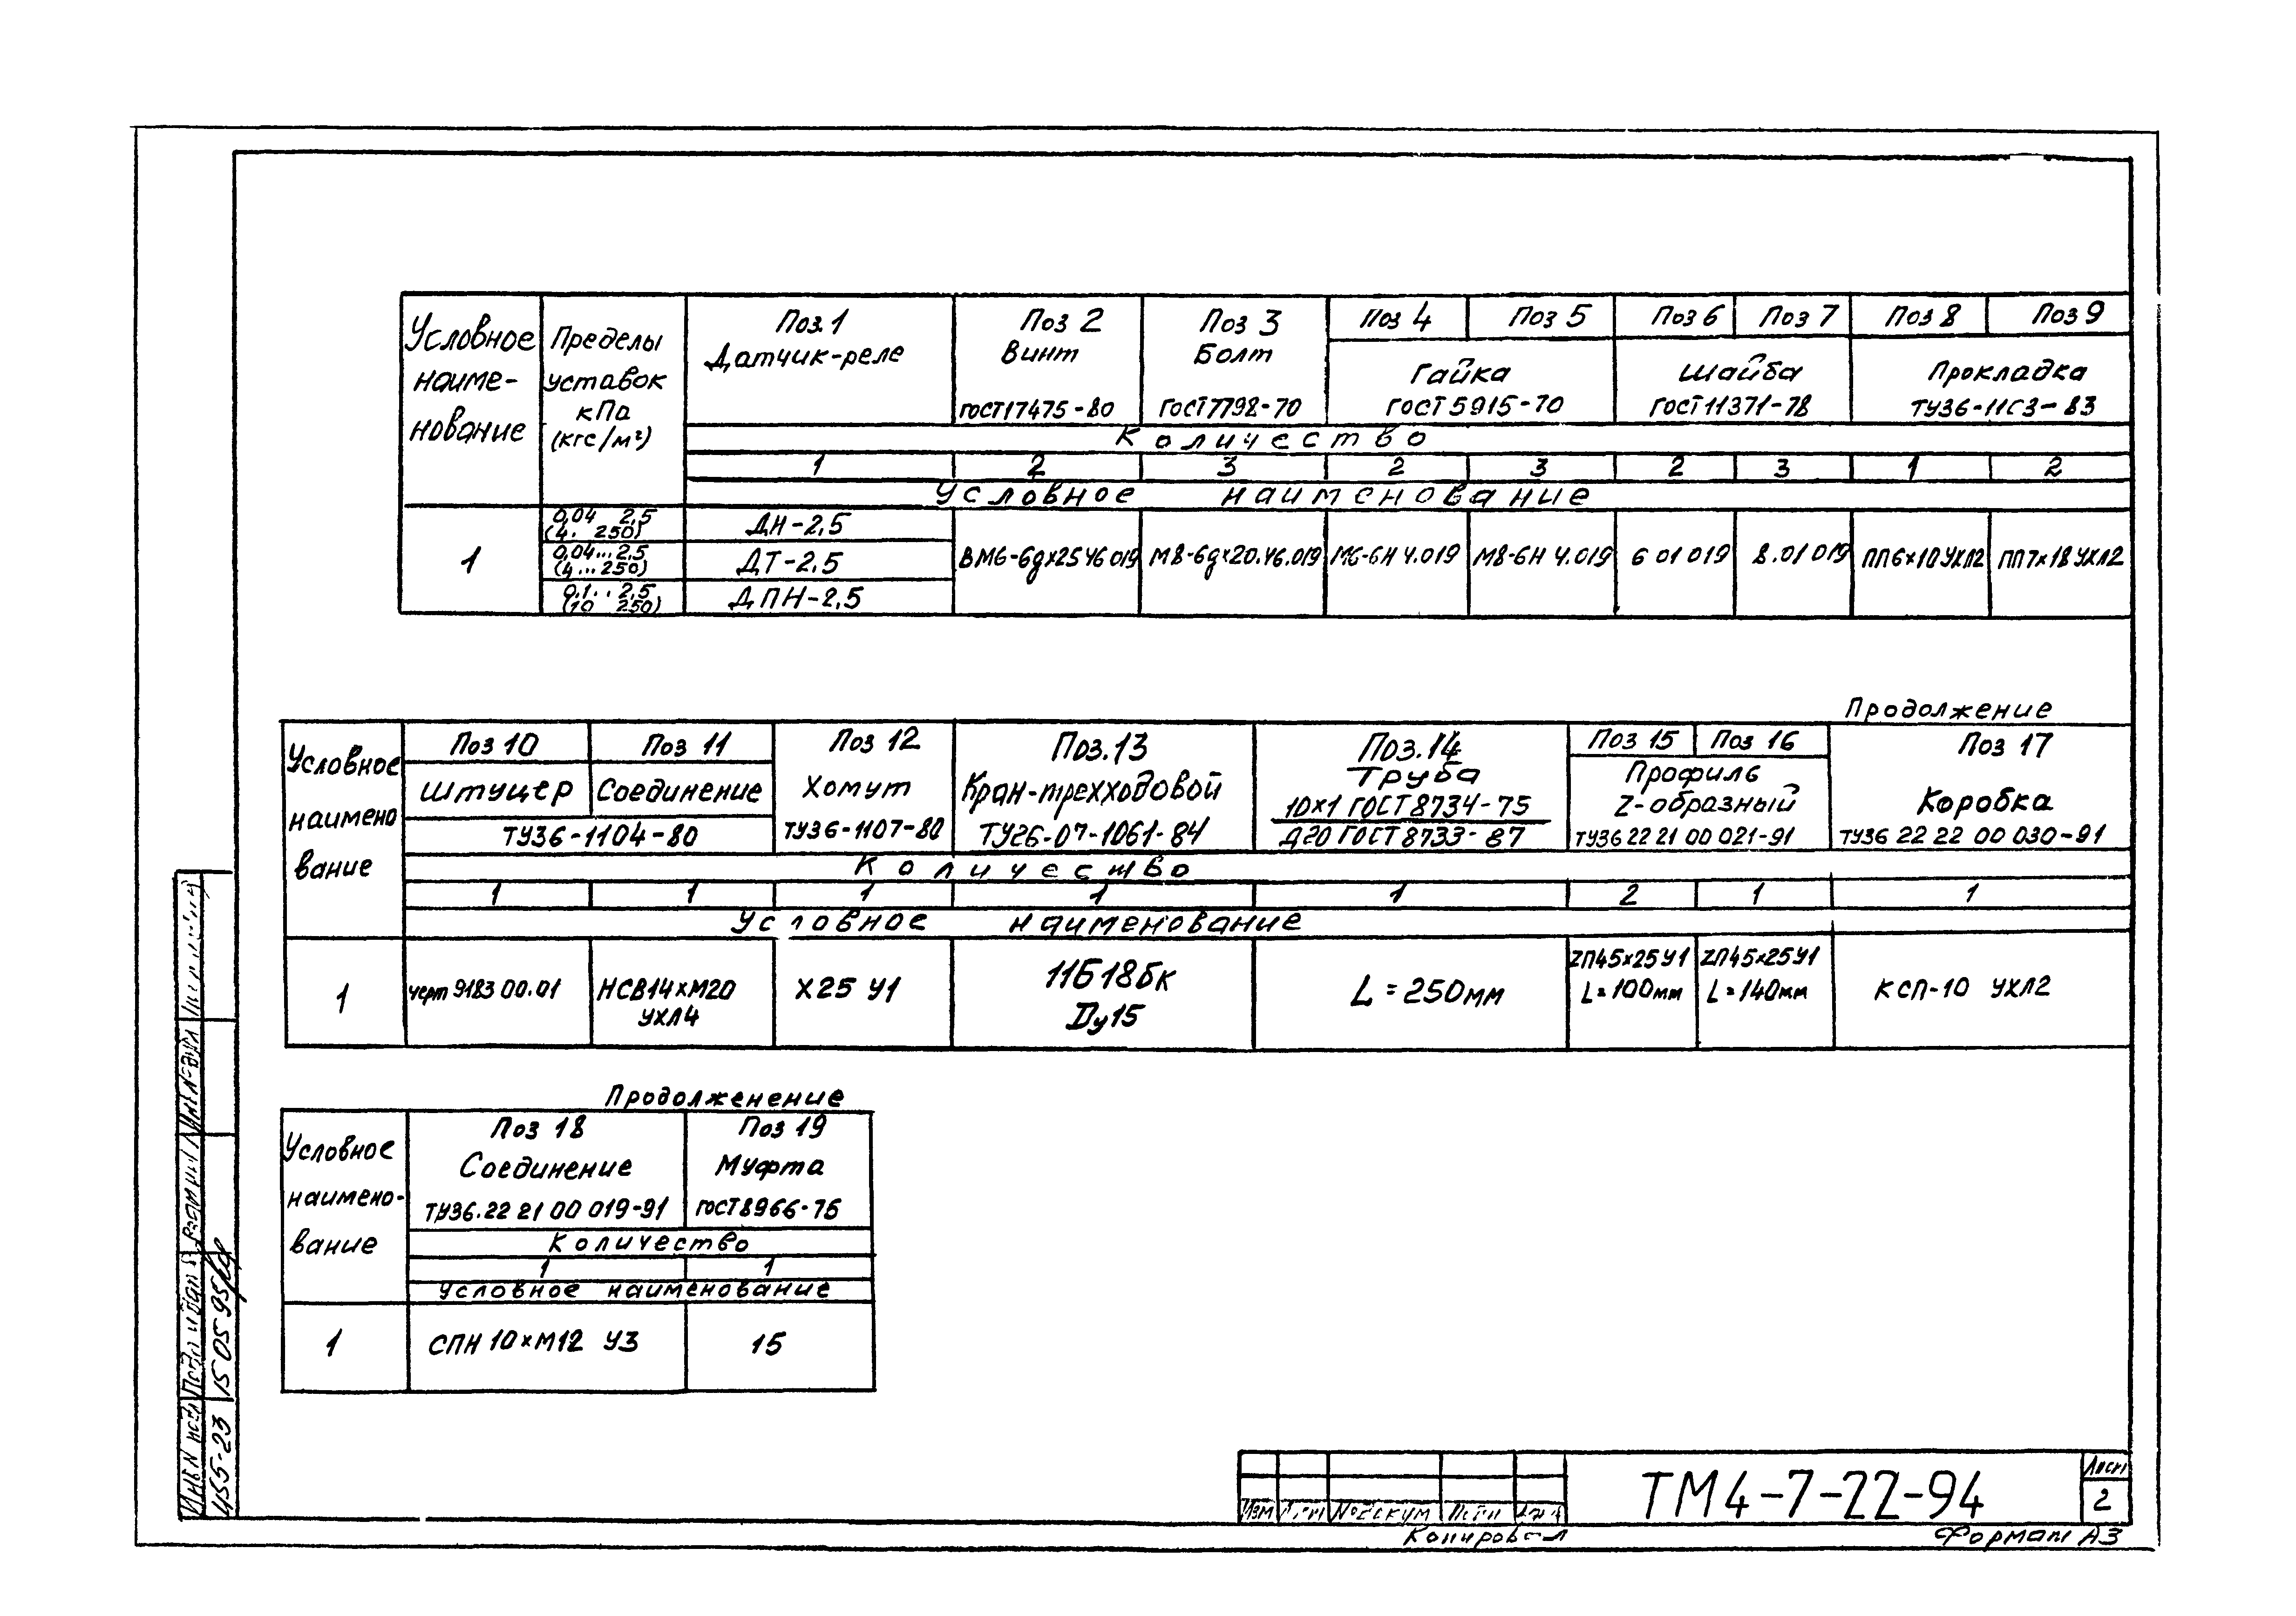 Условное наименование
Пределы уставок кПа (кгс/м²)
Поз.1 Датчик-реле
Поз 2 Винт ГОСТ17475-80
Поз 3 Болт ГОСТ7798-70
Поз 4 Поз 5
Гайка ГОСТ5915-70
Поз 6 Поз 7
Шайба ГОСТ11371-78
Поз 8 Поз 9
Прокладка
Количество
1 2 3 2 3 2 3 1 2
Условное наименование
1
0,04 2,5 (4. 250) ДН-2,5
0,04...2,5 (4...250) ДТ-2,5
0,1..2,5 (10 250) ДПН-2,5
ВМ6-6gx25 46 019 М8-6gx20.46.019 М6-6Н 4.019 М8-6Н 4.019 6 01 019 8.01 019 ПП6х10 УХЛ2 ПП7х18 УХЛ2
Продолжение
Условное наименование
Поз 10 Штуцер
Поз 11 Соединение
ТУ36-1104-80
Поз 12 Хомут ТУ36-1107-80
Поз.13 Кран-трехходовой ТУ26-07-1061-84
Поз.14 Труба 10х1 ГОСТ8734-75
Д20 ГОСТ8733-87
Поз 15 Поз 16
Профиль Z-образный ТУ36 22 21 00 021-91
Поз 17 Коробка ТУ36 22 22 00 030-91
Количество
1 1 1 1 1 2 1 1
Условное наименование
1
черт 9183 00.01
НСВ14хМ20 УХЛ4
Х25 У1
11Б18бк Dу15
L=250мм
ZП45х25У1 L=100мм
ZП45х25У1 L=140мм
КСП-10 УХЛ2
Продолженение
Условное наименование
Поз 18 Соединение ТУ36.22 21 00 019-91
Поз 19 Муфта ГОСТ8966-75
Количество
1 1
Условное наименование
1
СПН 10хМ12 У3
15
455-23
15 05 95
ТМ4-7-22-94
Лист
2
Формат А3